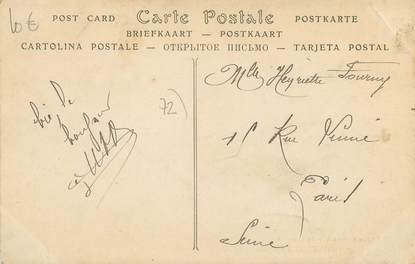 10€
POST CARD Carte Postale POSTKARTE
BRIEFKAART — POSTKAART
CARTOLINA POSTALE — ОТКРЫТОЕ ПИСЬМО — TARJETA POSTAL
72)
bonjour
Mlle Henriette Fourny
15 Rue
Paris
Seine